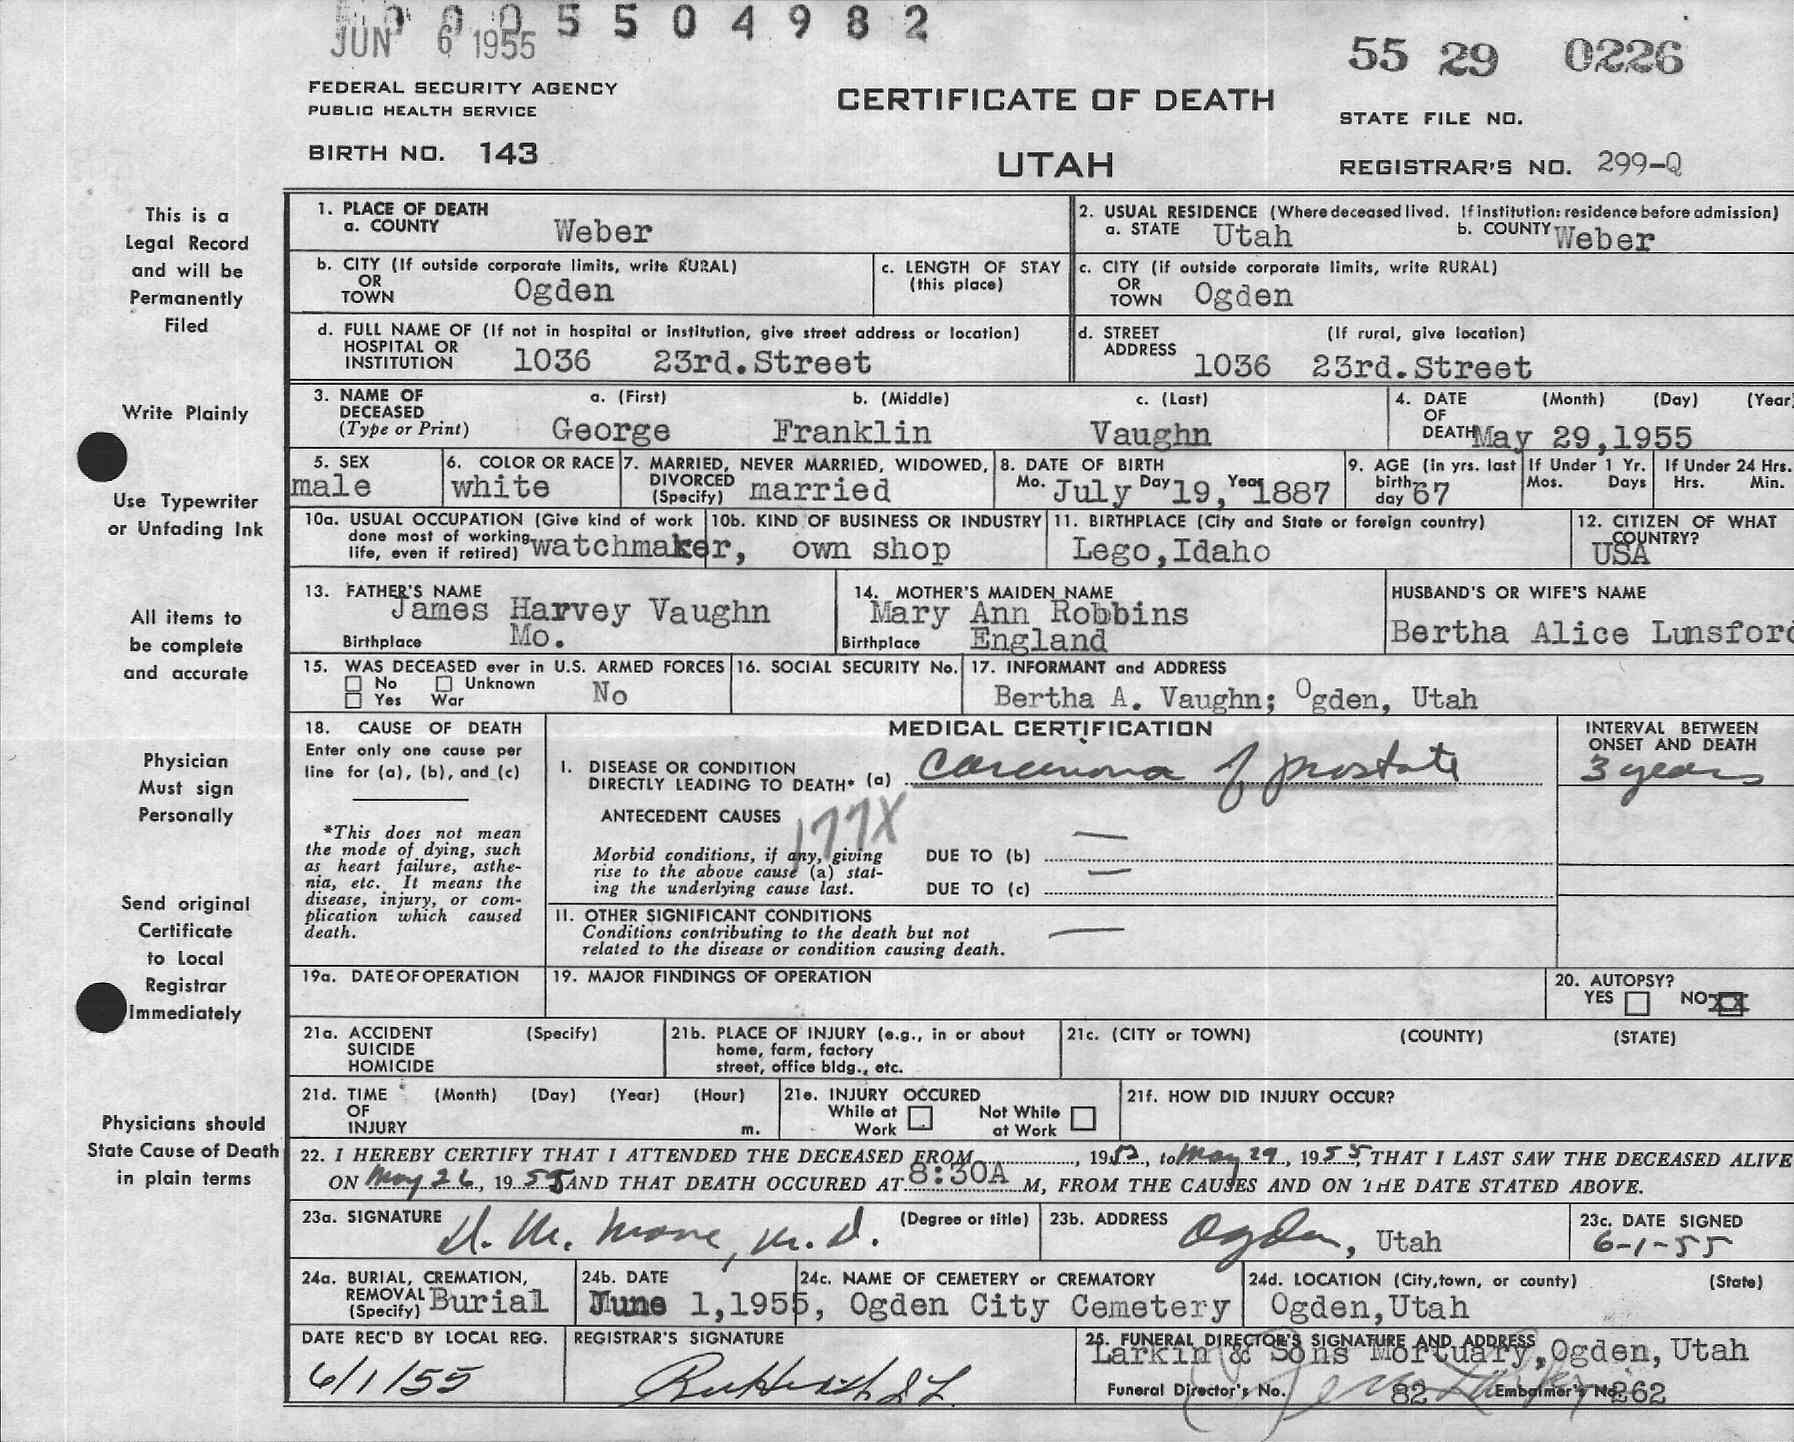 0005504982
JUN 6 1955
55 29 0226
FEDERAL SECURITY AGENCY
PUBLIC HEALTH SERVICE
CERTIFICATE OF DEATH
STATE FILE NO.
BIRTH NO. 143
UTAH
REGISTRAR'S NO. 299-Q
This is a
Legal Record
and will be
Permanently
Filed
Write Plainly
Use Typewriter
or Unfading Ink
All items to
be complete
and accurate
Physician
Must sign
Personally
Send original
Certificate
to Local
Registrar
Immediately
Physicians should
State Cause of Death
in plain terms
1. PLACE OF DEATH
a. COUNTY Weber
2. USUAL RESIDENCE (Where deceased lived. If institution: residence before admission)
a. STATE Utah b. COUNTY Weber
b. CITY (If outside corporate limits, write RURAL)
OR
TOWN Ogden
c. LENGTH OF STAY
(this place)
c. CITY (if outside corporate limits, write RURAL)
OR
TOWN Ogden
d. FULL NAME OF (If not in hospital or institution, give street address or location)
HOSPITAL OR
INSTITUTION 1036 23rd.Street
d. STREET (If rural, give location)
ADDRESS 1036 23rd.Street
3. NAME OF a. (First) b. (Middle) c. (Last)
DECEASED
(Type or Print) George Franklin Vaughn
4. DATE (Month) (Day) (Year
OF
DEATH May 29,1955
5. SEX
male
6. COLOR OR RACE
white
7. MARRIED, NEVER MARRIED, WIDOWED,
DIVORCED
(Specify) married
8. DATE OF BIRTH
Mo. July Day 19, Year 1887
9. AGE (in yrs. last
birth-
day 67
If Under 1 Yr.
Mos. Days
If Under 24 Hrs.
Hrs. Min.
10a. USUAL OCCUPATION (Give kind of work
done most of working
life, even if retired) watchmaker,
10b. KIND OF BUSINESS OR INDUSTRY
own shop
11. BIRTHPLACE (City and State or foreign country)
Lego,Idaho
12. CITIZEN OF WHAT
COUNTRY?
USA
13. FATHER'S NAME
James Harvey Vaughn
Birthplace Mo.
14. MOTHER'S MAIDEN NAME
Mary Ann Robbins
Birthplace England
HUSBAND'S OR WIFE'S NAME
Bertha Alice Lunsford
15. WAS DECEASED ever in U.S. ARMED FORCES
No Unknown No
Yes War
16. SOCIAL SECURITY No.
17. INFORMANT and ADDRESS
Bertha A. Vaughn; Ogden, Utah
18. CAUSE OF DEATH
Enter only one cause per
line for (a), (b), and (c)
*This does not mean
the mode of dying, such
as heart failure, asthe-
nia, etc. It means the
disease, injury, or com-
plication which caused
death.
MEDICAL CERTIFICATION
I. DISEASE OR CONDITION
DIRECTLY LEADING TO DEATH* (a) Carcinoma of prostate
INTERVAL BETWEEN
ONSET AND DEATH
3 years
ANTECEDENT CAUSES
177X
Morbid conditions, if any, giving
rise to the above cause (a) stat-
ing the underlying cause last.
DUE TO (b) —
DUE TO (c) —
II. OTHER SIGNIFICANT CONDITIONS
Conditions contributing to the death but not
related to the disease or condition causing death. —
19a. DATE OF OPERATION
19. MAJOR FINDINGS OF OPERATION
20. AUTOPSY?
YES NO XX
21a. ACCIDENT (Specify)
SUICIDE
HOMICIDE
21b. PLACE OF INJURY (e.g., in or about
home, farm, factory
street, office bldg., etc.
21c. (CITY or TOWN) (COUNTY) (STATE)
21d. TIME (Month) (Day) (Year) (Hour)
OF
INJURY m.
21e. INJURY OCCURED
While at Not While
Work at Work
21f. HOW DID INJURY OCCUR?
22. I HEREBY CERTIFY THAT I ATTENDED THE DECEASED FROM, 1952, to May 29, 1955, THAT I LAST SAW THE DECEASED ALIVE
ON May 26, 1955 AND THAT DEATH OCCURED AT 8:30A M, FROM THE CAUSES AND ON THE DATE STATED ABOVE.
23a. SIGNATURE (Degree or title)
M.D.
23b. ADDRESS
Ogden, Utah
23c. DATE SIGNED
6-1-55
24a. BURIAL, CREMATION,
REMOVAL
(Specify) Burial
24b. DATE
June 1,1955,
24c. NAME OF CEMETERY or CREMATORY
Ogden City Cemetery
24d. LOCATION (City,town, or county) (State)
Ogden,Utah
DATE REC'D BY LOCAL REG.
6/1/55
REGISTRAR'S SIGNATURE
25. FUNERAL DIRECTOR'S SIGNATURE AND ADDRESS
Larkin & Sons Mortuary,Ogden, Utah
Funeral Director's No. 82 Embalmer's No. 262